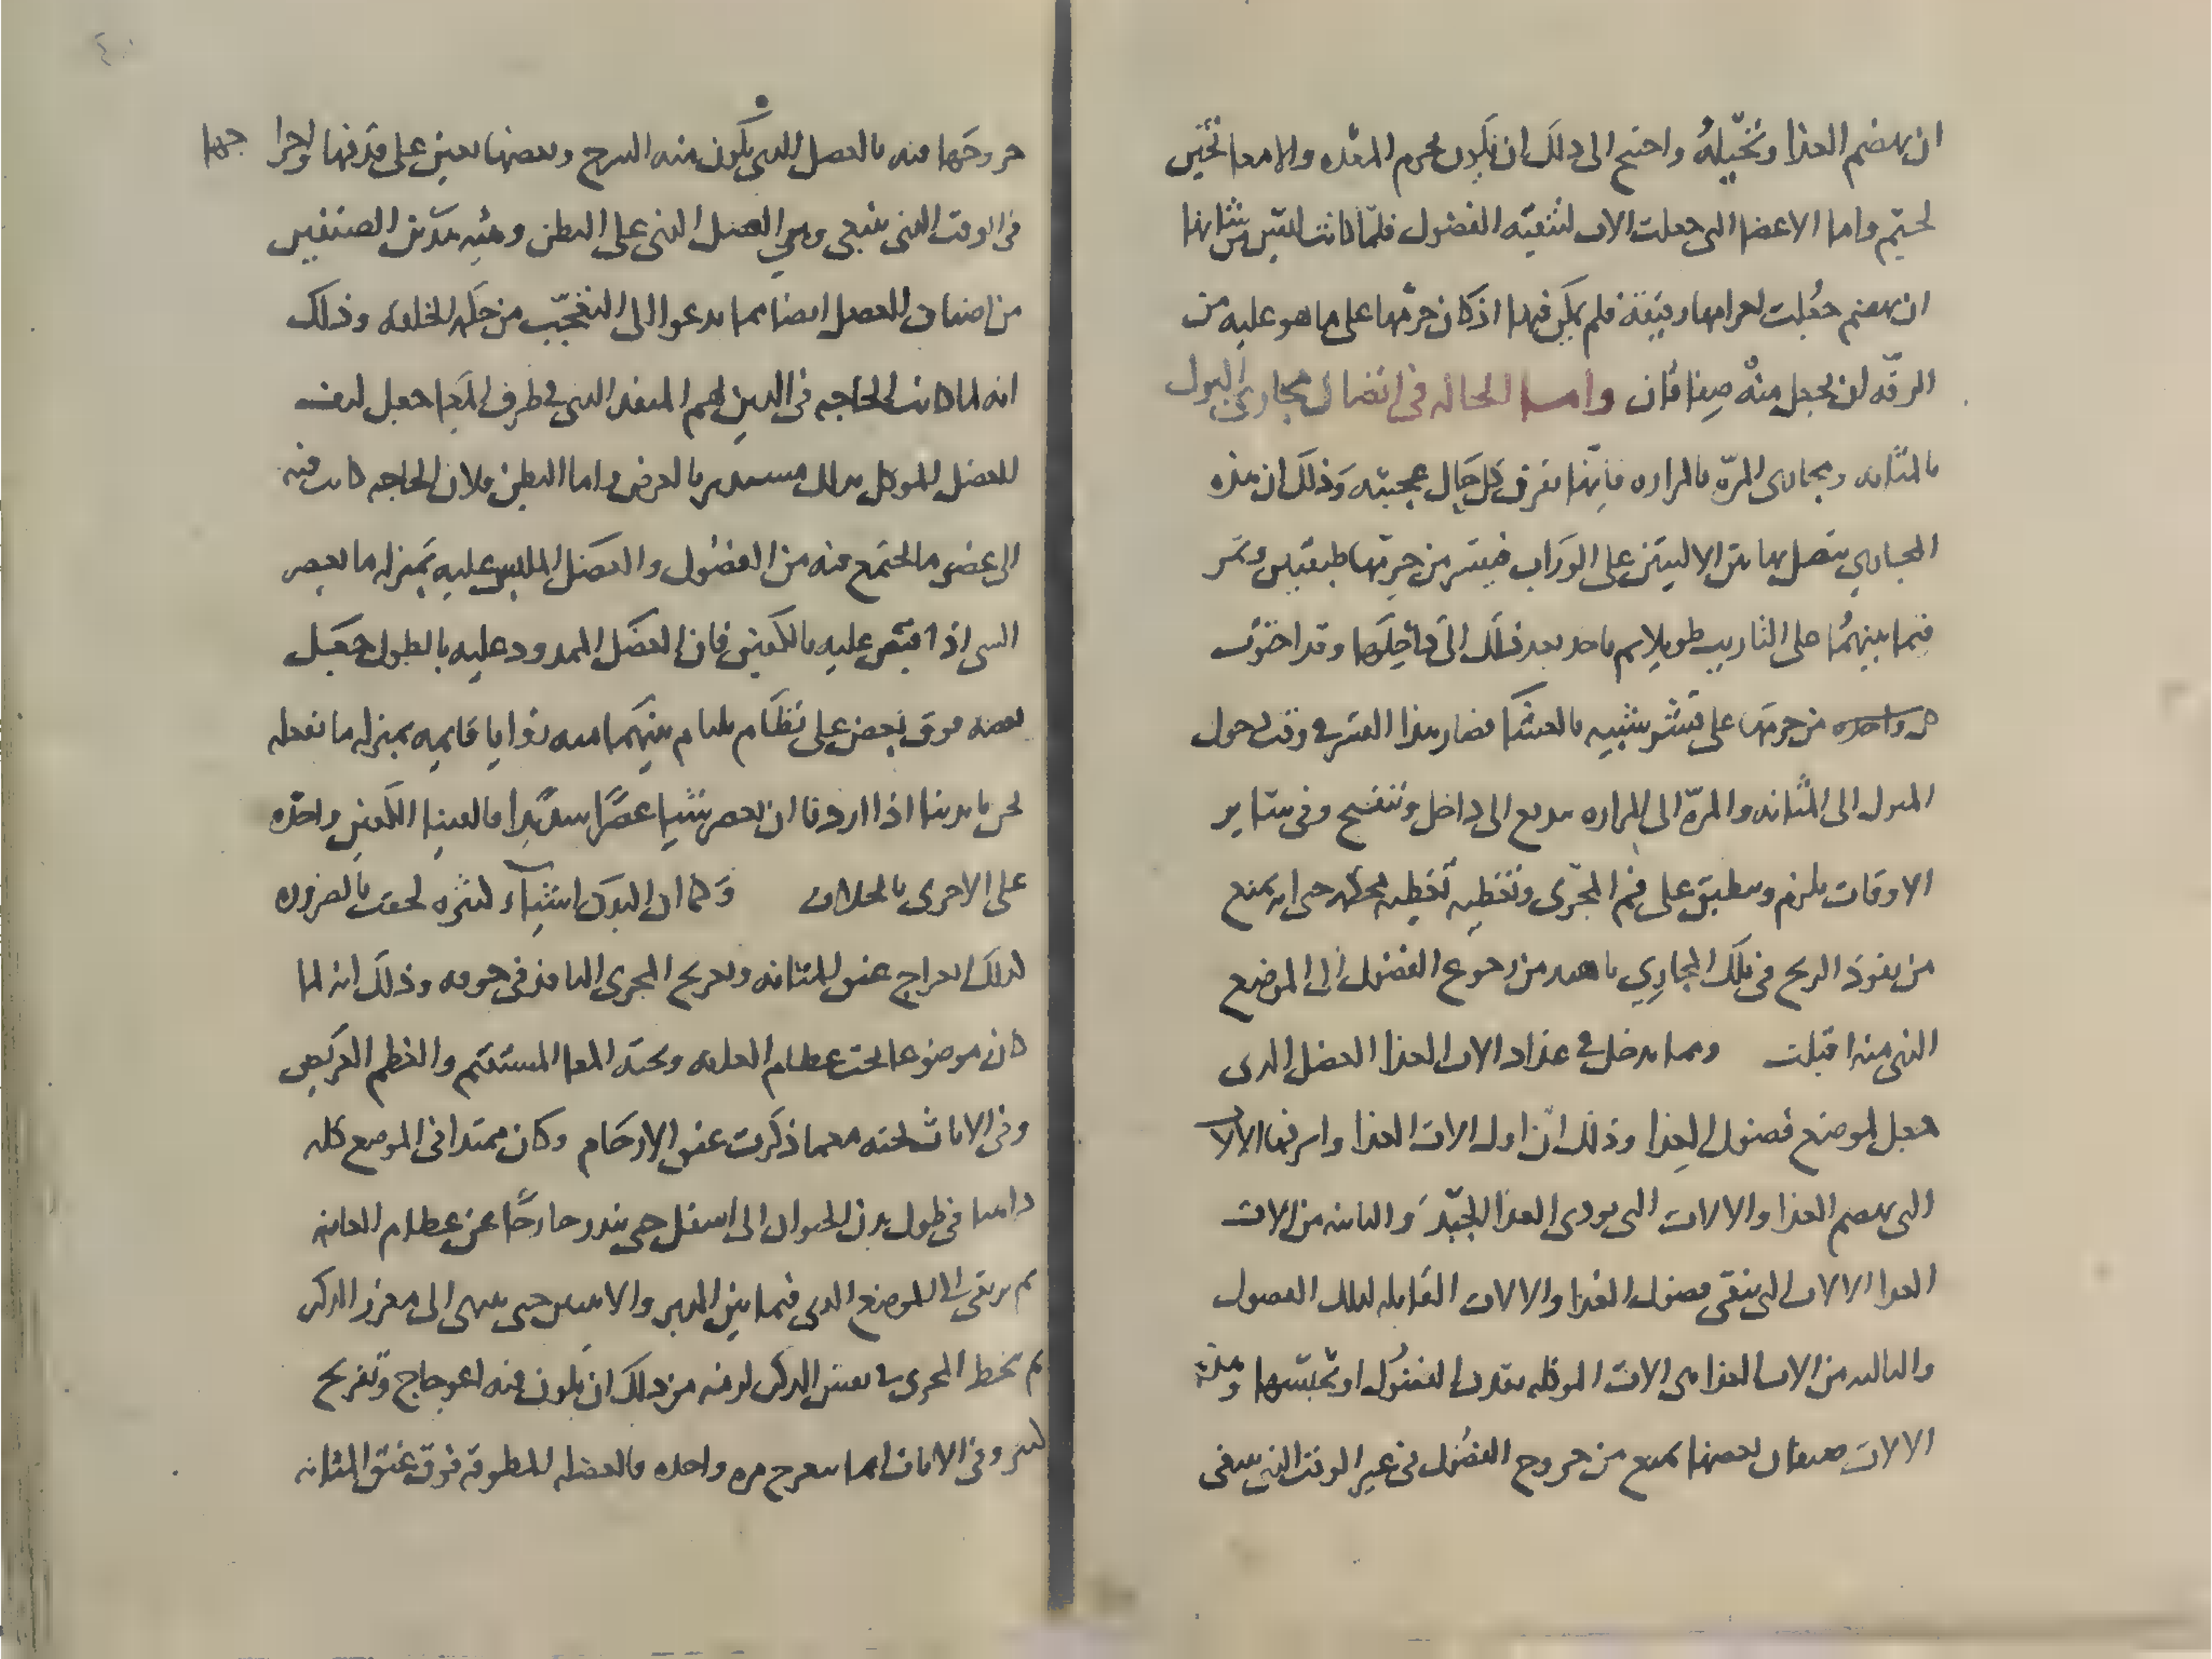 ان يهضم الغذا وتخيّله واحتج الى ذلك ان يكون لجرم المعده والامعا ثخين
لحيّم واما الاعضا التى جعلت الات لتنقيه الفضول فلمّا كانت ليس من شانها
ان يهضم جعلت اجرامها رقيقة فلم يمكن فيها اذ كان جرمها على ما هو عليه من
الرقه ان يجعل منه صفاقان واما الحال فى اتصال مجارى البول
بالمثانه ومجارى المرّه بالمراره فانها تفوق كل حال عجيبه وذلك ان هذه
المجارى يتصل بهاتين الاليتين على الوراب فيقشر من جرمها طبقتين وتمر
فيما بينهما على التاريب طويلا ثم ياخذ بعد ذلك الى داخلها وقد احتوت
كل واحده من جرمها على قشر شبيه بالغشا فصار هذا القشر فى وقت دخول
البول الى المثانه والمرّه الى المراره يدفع الى داخل وينفتح وفى سائر
الاوقات يلزم وينطبق على فم المجرى وتغطيه تغطيه محكمه حتى انه يمنع
من نفوذ الريح فى تلك المجارى من رجوع الفضول الى الموضع
الذى منه اقبلت ومما يدخل فى عداد الات الغذا العضل الذى
جعل لموضع فضول الغذا وذلك ان اول الات الغذا واشرفها الالات
التى تهضم الغذا والالات التى تودى الغذا الجيّد والثانيه من الات
الغذا الالات التى تنقى فضول الغذا والالات القابله لتلك الفضول
والثالثه من الات الغذا هى الالات الموكله بقذف الفضول او تحبسها وهذه
الالات صنفان بعضها يمنع من خروج الفضول فى غير الوقت الذى ينبغى
خروجها فيه كالعضل الذى يكون منه السرج وبعضها يعين على قذفها واخراجها
فى الوقت الذى ينبغى وهى العضل الذى على البطن وهيه هذين الصنفين
من اصناف العضل ايضا مما يدعوا الى التعجّب من حكمه الخلقه وذلك
انه لما كانت الحاجه فى الذين لضم المنفذ الذى فى طرف المعا جعل ليف
العضل الموكل بذلك مستديرا بالعرض واما البطن فلان الحاجه كانت فيه
الى عصر ما اجتمع فيه من الفضول والعضل الملبس عليه بمنزله ما يعصر
الشى اذا قبض عليه بالكفين فان العضل الممدود عليه بالطول جعل
بعضه فوق بعض على نظام يلتام بينهما منه زوايا قايمه بمنزله ما نفعله
نحن بايدينا اذا اردنا ان نعصر شيا عصرا شديدا فالقينا الكفين واحده
على الاخرى بالخلاف وكما ان البدن اشياء كثيره لحقت بالضروره
كذلك اعوجاج عنق المثانه وتعريج المجرى النافذ فى جوفه وذلك انه لما
كان موضوعا تحت عظام العانه وتحته المعا المستقيم والعظم العريض
وفى الاناث تحته معما ذكرت عنق الارحام وكان ممتدا فى الموضع كله
ذاهبا فى طول بدن الحيوان الى اسفل حتى يندر خارجا عن عظام العانه
ثم يرتقى الى الموضع الذى فيما بين الدبر والانثيين حتى ينتهى الى مغرز الذكر
ثم ينحط المجرى فى نفس الذكر لزمه من ذلك ان يكون فيه اعوجاج وتعريج
كثير وفى الاناث انما يتعرج مره واحده فالعضله المطوقه فوق عنق المثانه